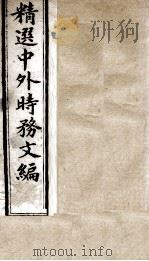 精選中外時務文編
mtoou.info
mtoou.info